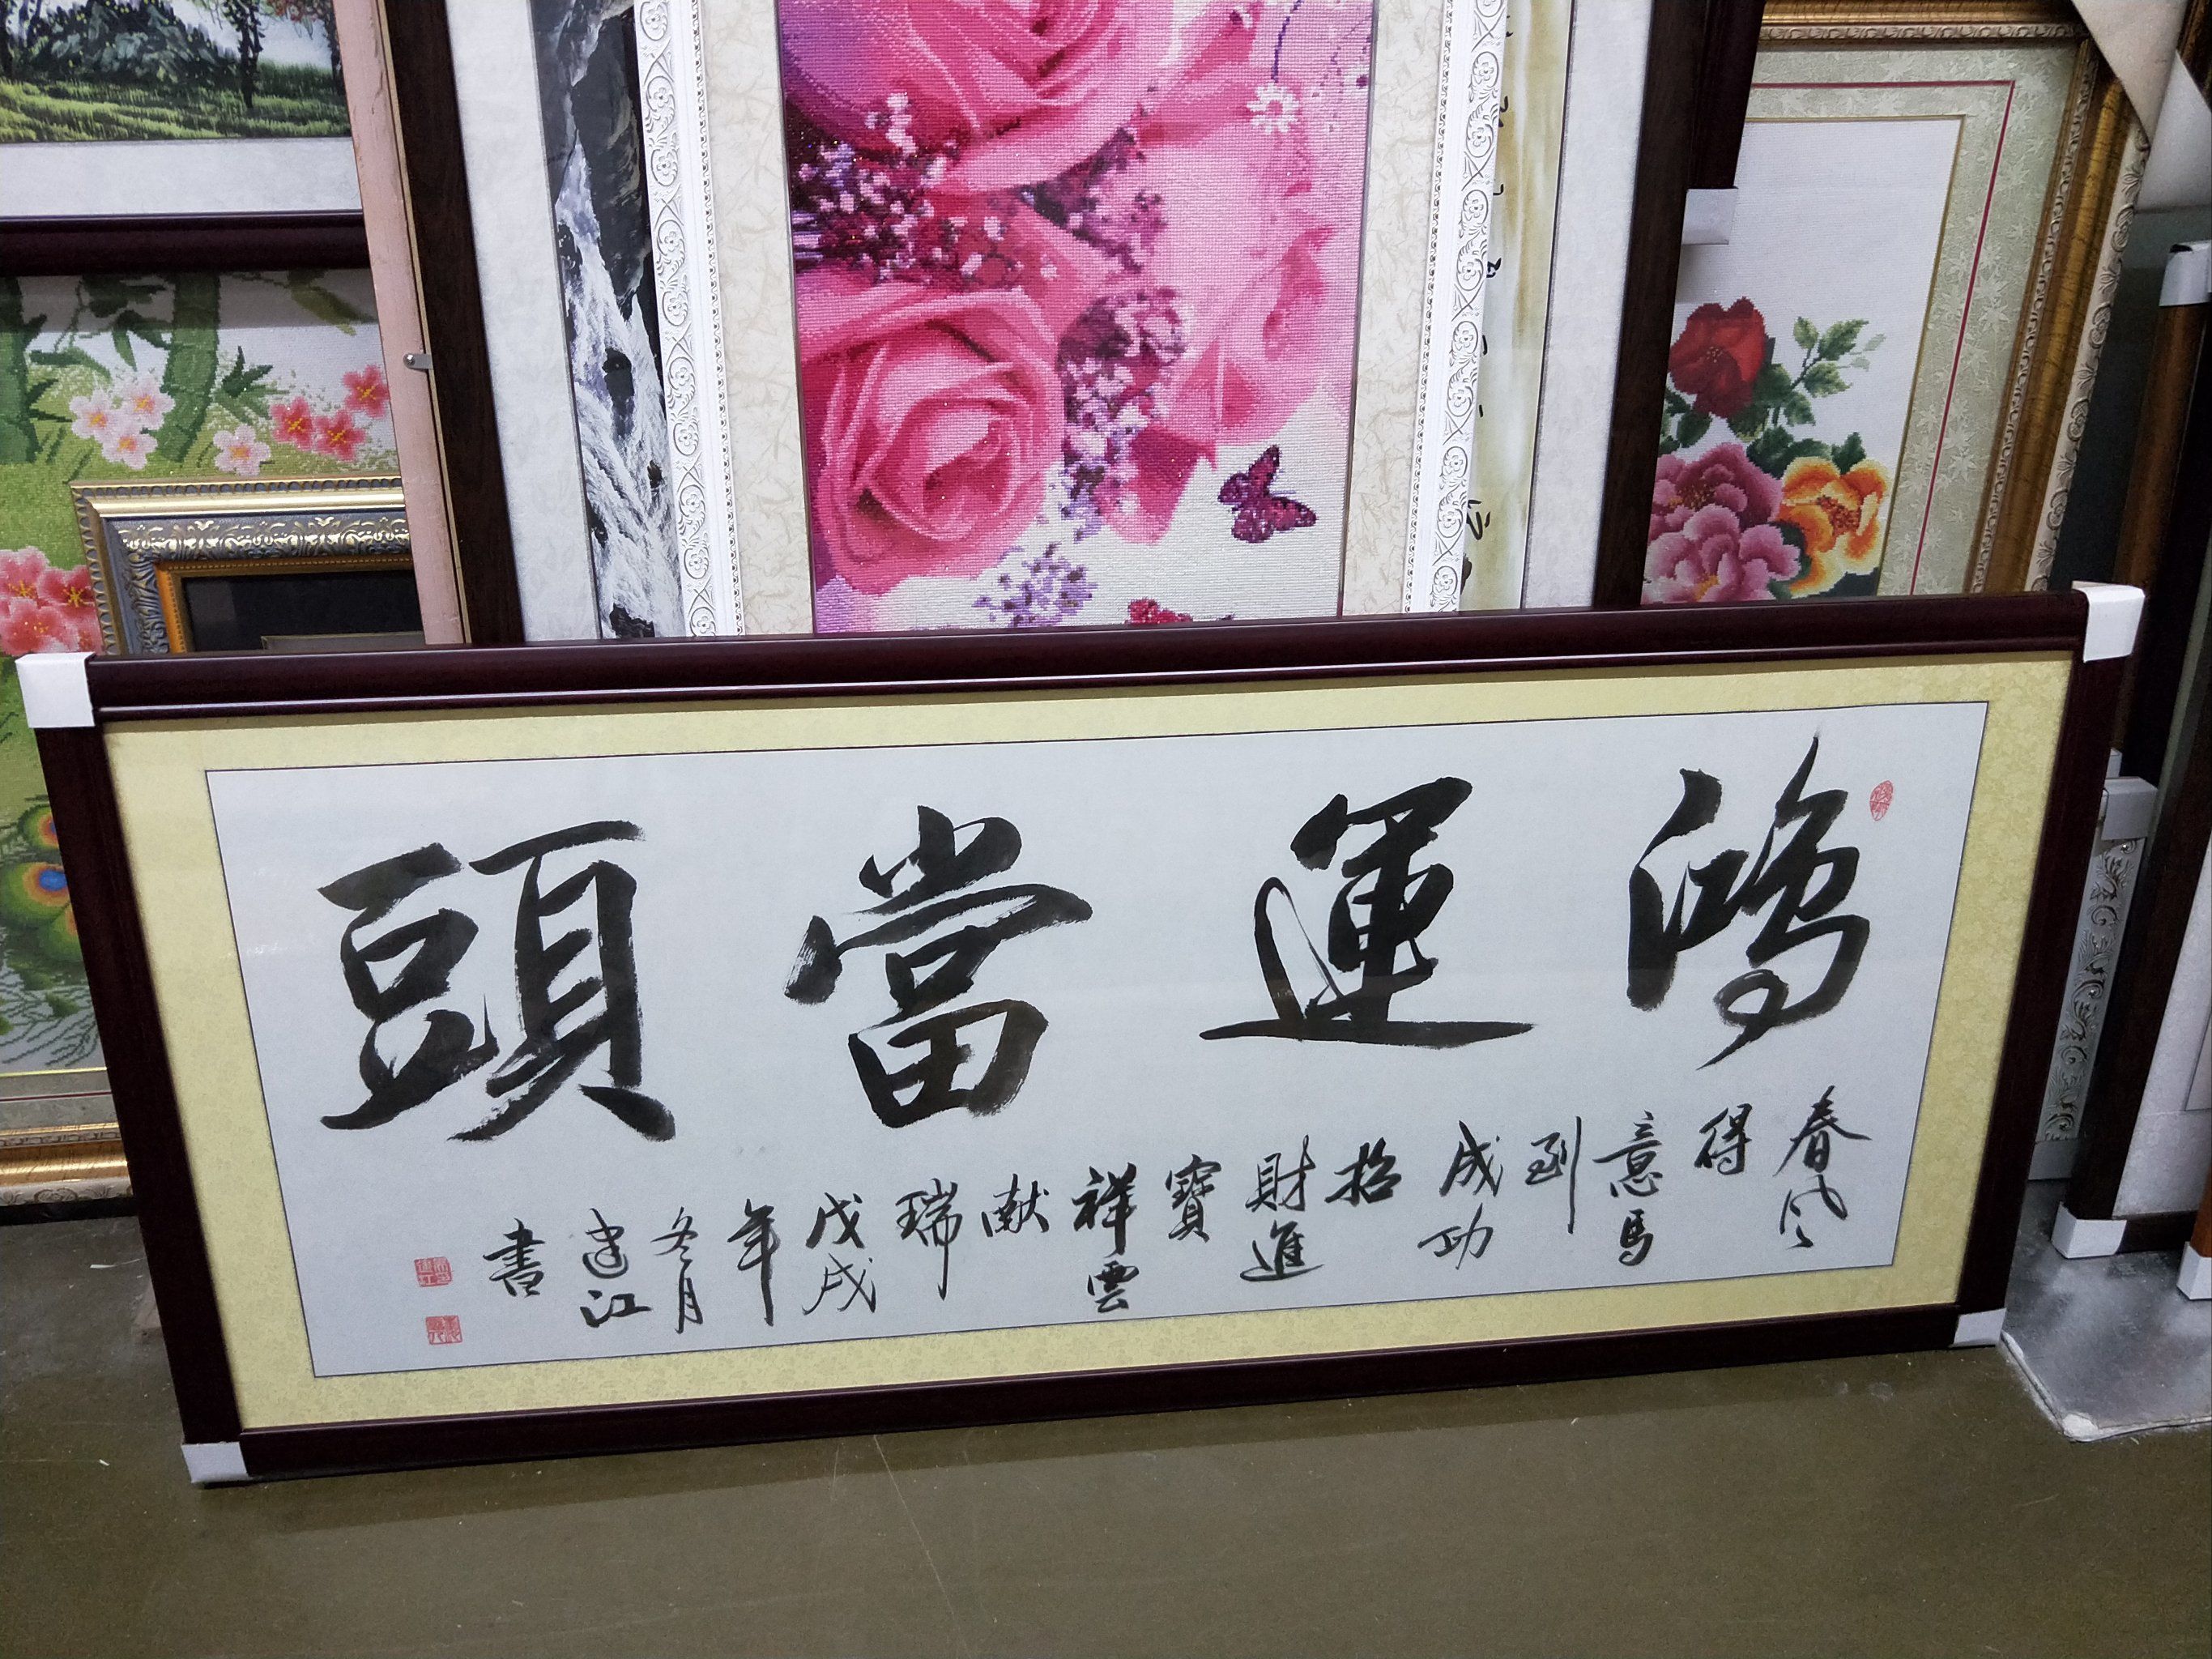 鸿運當頭
春風
得
意馬
到
成功
招
財進
寶
祥雲
献
瑞
戊戌
年
冬月
建江
書